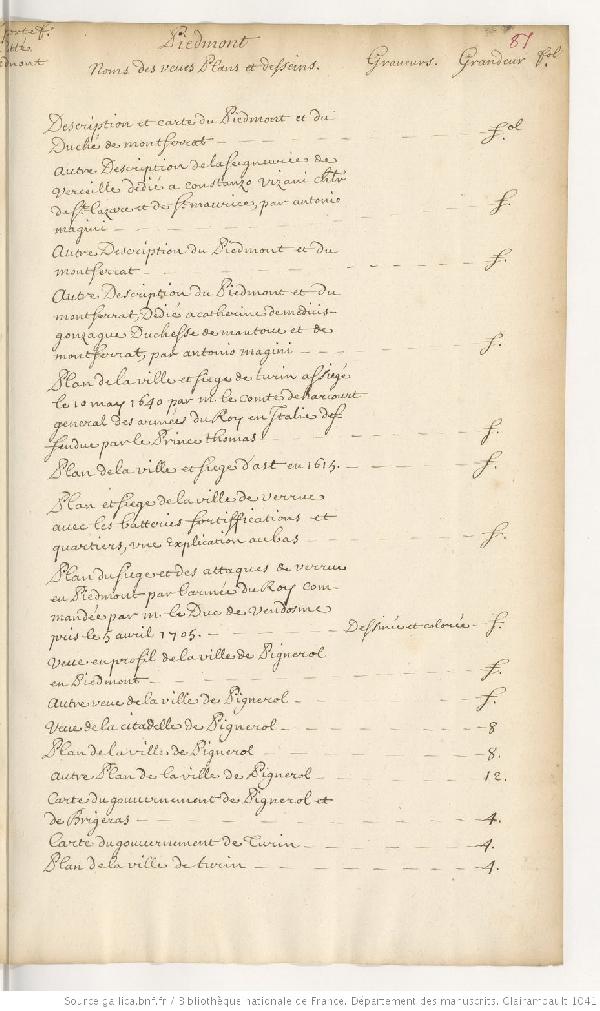 Piedmont
81
Noms des veues Plans et desseins. Graveurs. Grandeur fol
Description et carte du Piedmont et du
Duché de montferrat - f.ol
Autre Description de la seigneurie de
verceille dedié a constanzo vizani chltr
de St. lazare et de St. maurice, par antonio
magini - f.
Autre Description du Piedmont et du
montferrat - f.
Autre Description du Piedmont et du
montferrat, Dedié a catherine de medicis
gonzague Duchesse de mantoue et de
montferrat, par antonio magini - f.
Plan de la ville et siege de turin assiegé
le 10 may 1640 par m. le comte de harcourt
general des armées du Roy en Italie def
fendue par le Prince thomas - f.
Plan de la ville et siege d'ast en 1615. - f.
Plan et siege de la ville de verrue
avec les batteries fortiffications et
quartiers, une Explication au bas - f.
Plan du siege et des attaques de verrue
en Piedmont par l'armée du Roy com-
mandée par m. le Duc de Vendosme
pris le 5 avril 1705. - Dessiné et colorié - f.
Veue en profil de la ville de Pignerol
en Piedmont - f.
Autre veue de la ville de Pignerol - f.
Veue de la citadelle de Pignerol - 8
Plan de la ville de Pignerol - 8.
Autre Plan de la ville de Pignerol - 12.
Carte du gouvernement de Pignerol et
de Brigeras - 4.
Carte du gouvernement de Turin - 4.
Plan de la ville de turin - 4.
Source gallica.bnf.fr / Bibliothèque nationale de France. Département des manuscrits. Clairambault 1041